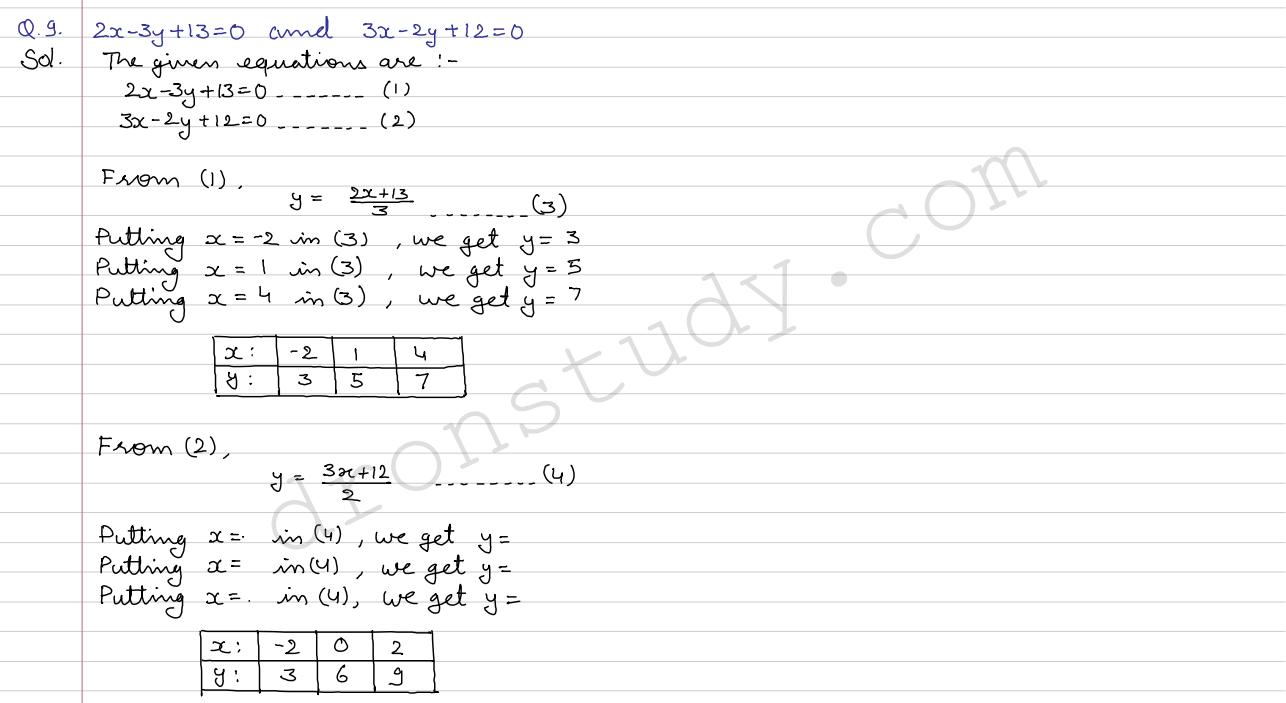 Q.9. 2x-3y+13=0 and 3x-2y+12=0
Sol. The given equations are :-
2x-3y+13=0 ------- (1)
3x-2y+12=0 ------- (2)
From (1),
y = (2x+13)/3 -------- (3)
Putting x = -2 in (3), we get y = 3
Putting x = 1 in (3), we get y = 5
Putting x = 4 in (3), we get y = 7
x: -2 1 4
y: 3 5 7
From (2),
y = (3x+12)/2 --------- (4)
Putting x= in (4), we get y=
Putting x= in (4), we get y=
Putting x= in (4), we get y=
x: -2 0 2
y: 3 6 9
dronstudy.com